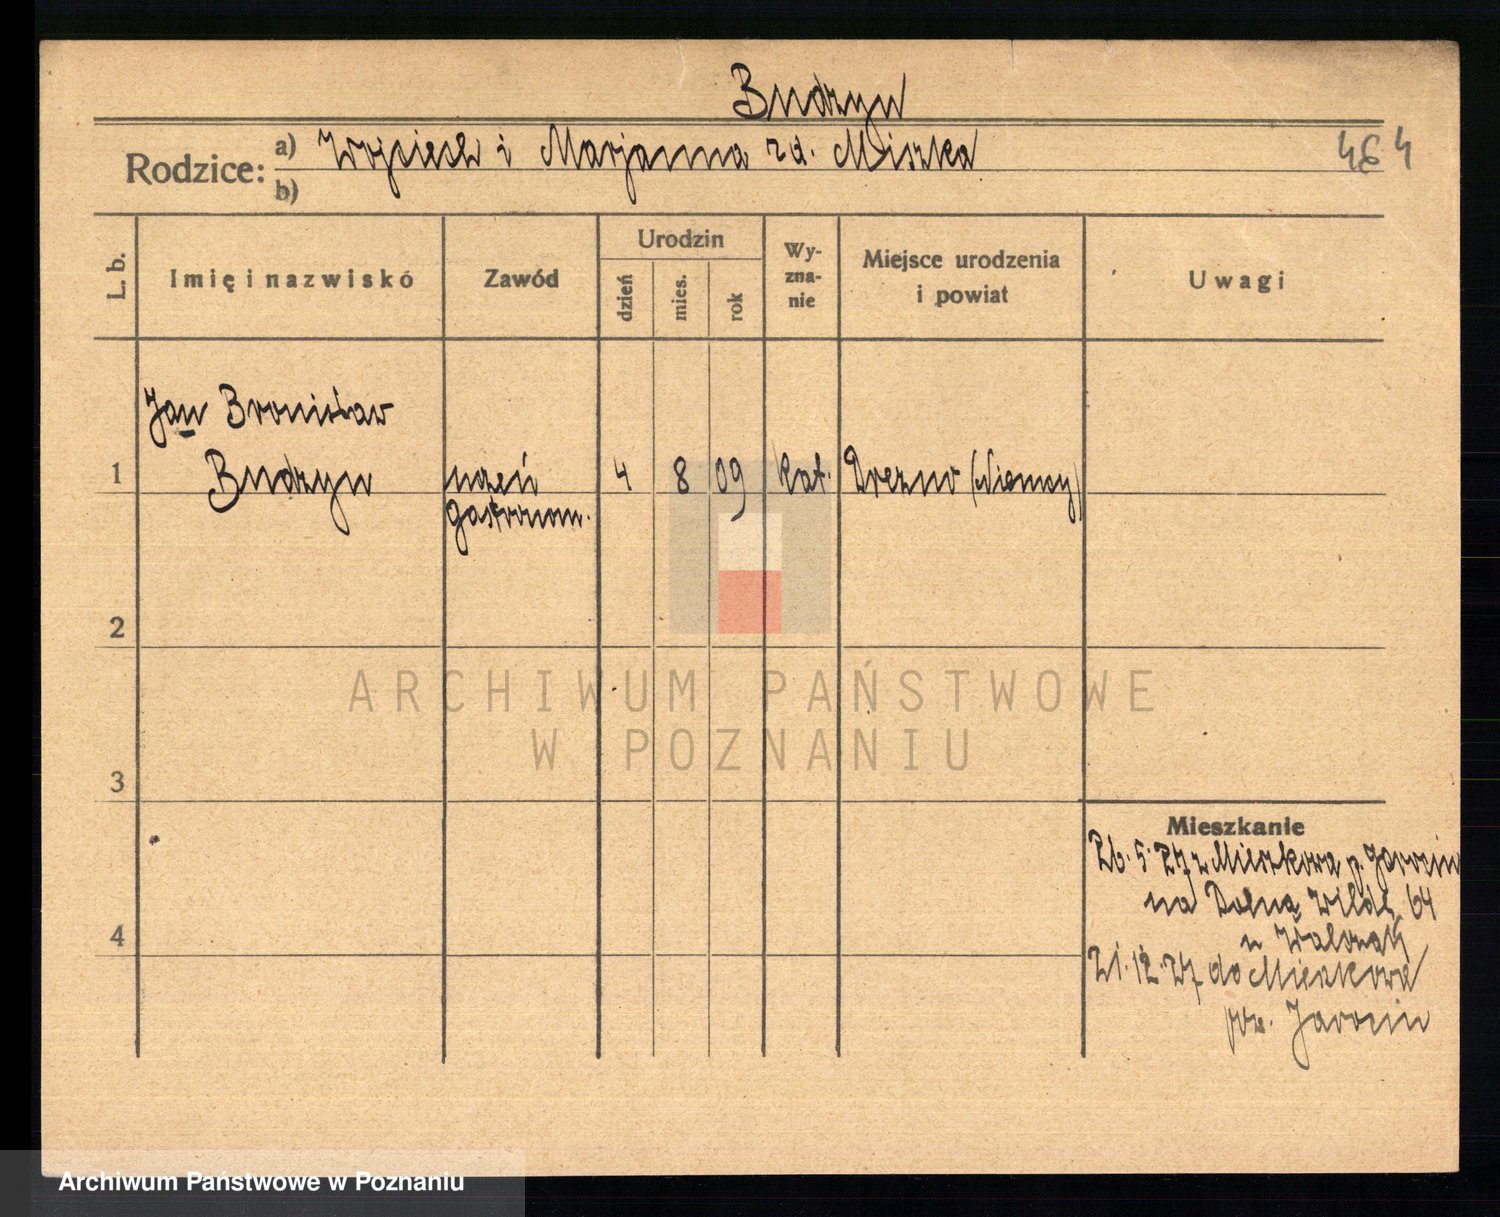 Budzyn
Rodzice: a) Wojciech i Marjanna zd. Miszka
464
b)
L. b.
Imię i nazwiskó
Zawód
Urodzin
dzień
mies.
rok
Wy-
zna-
nie
Miejsce urodzenia
i powiat
Uwagi
Jan Bronisław
1 Budzyn uczeń 4 8 09 kat. Drezno (Niemcy)
gastronom.
2
ARCHIWUM PAŃSTWOWE
W POZNANIU
3
Mieszkanie
26.5.27 z Mieszkowa p. Jarocin
na Dolną Wildę 64
4
21.12.27 do Mieszkowa
pow. Jarocin
Archiwum Państwowe w Poznaniu